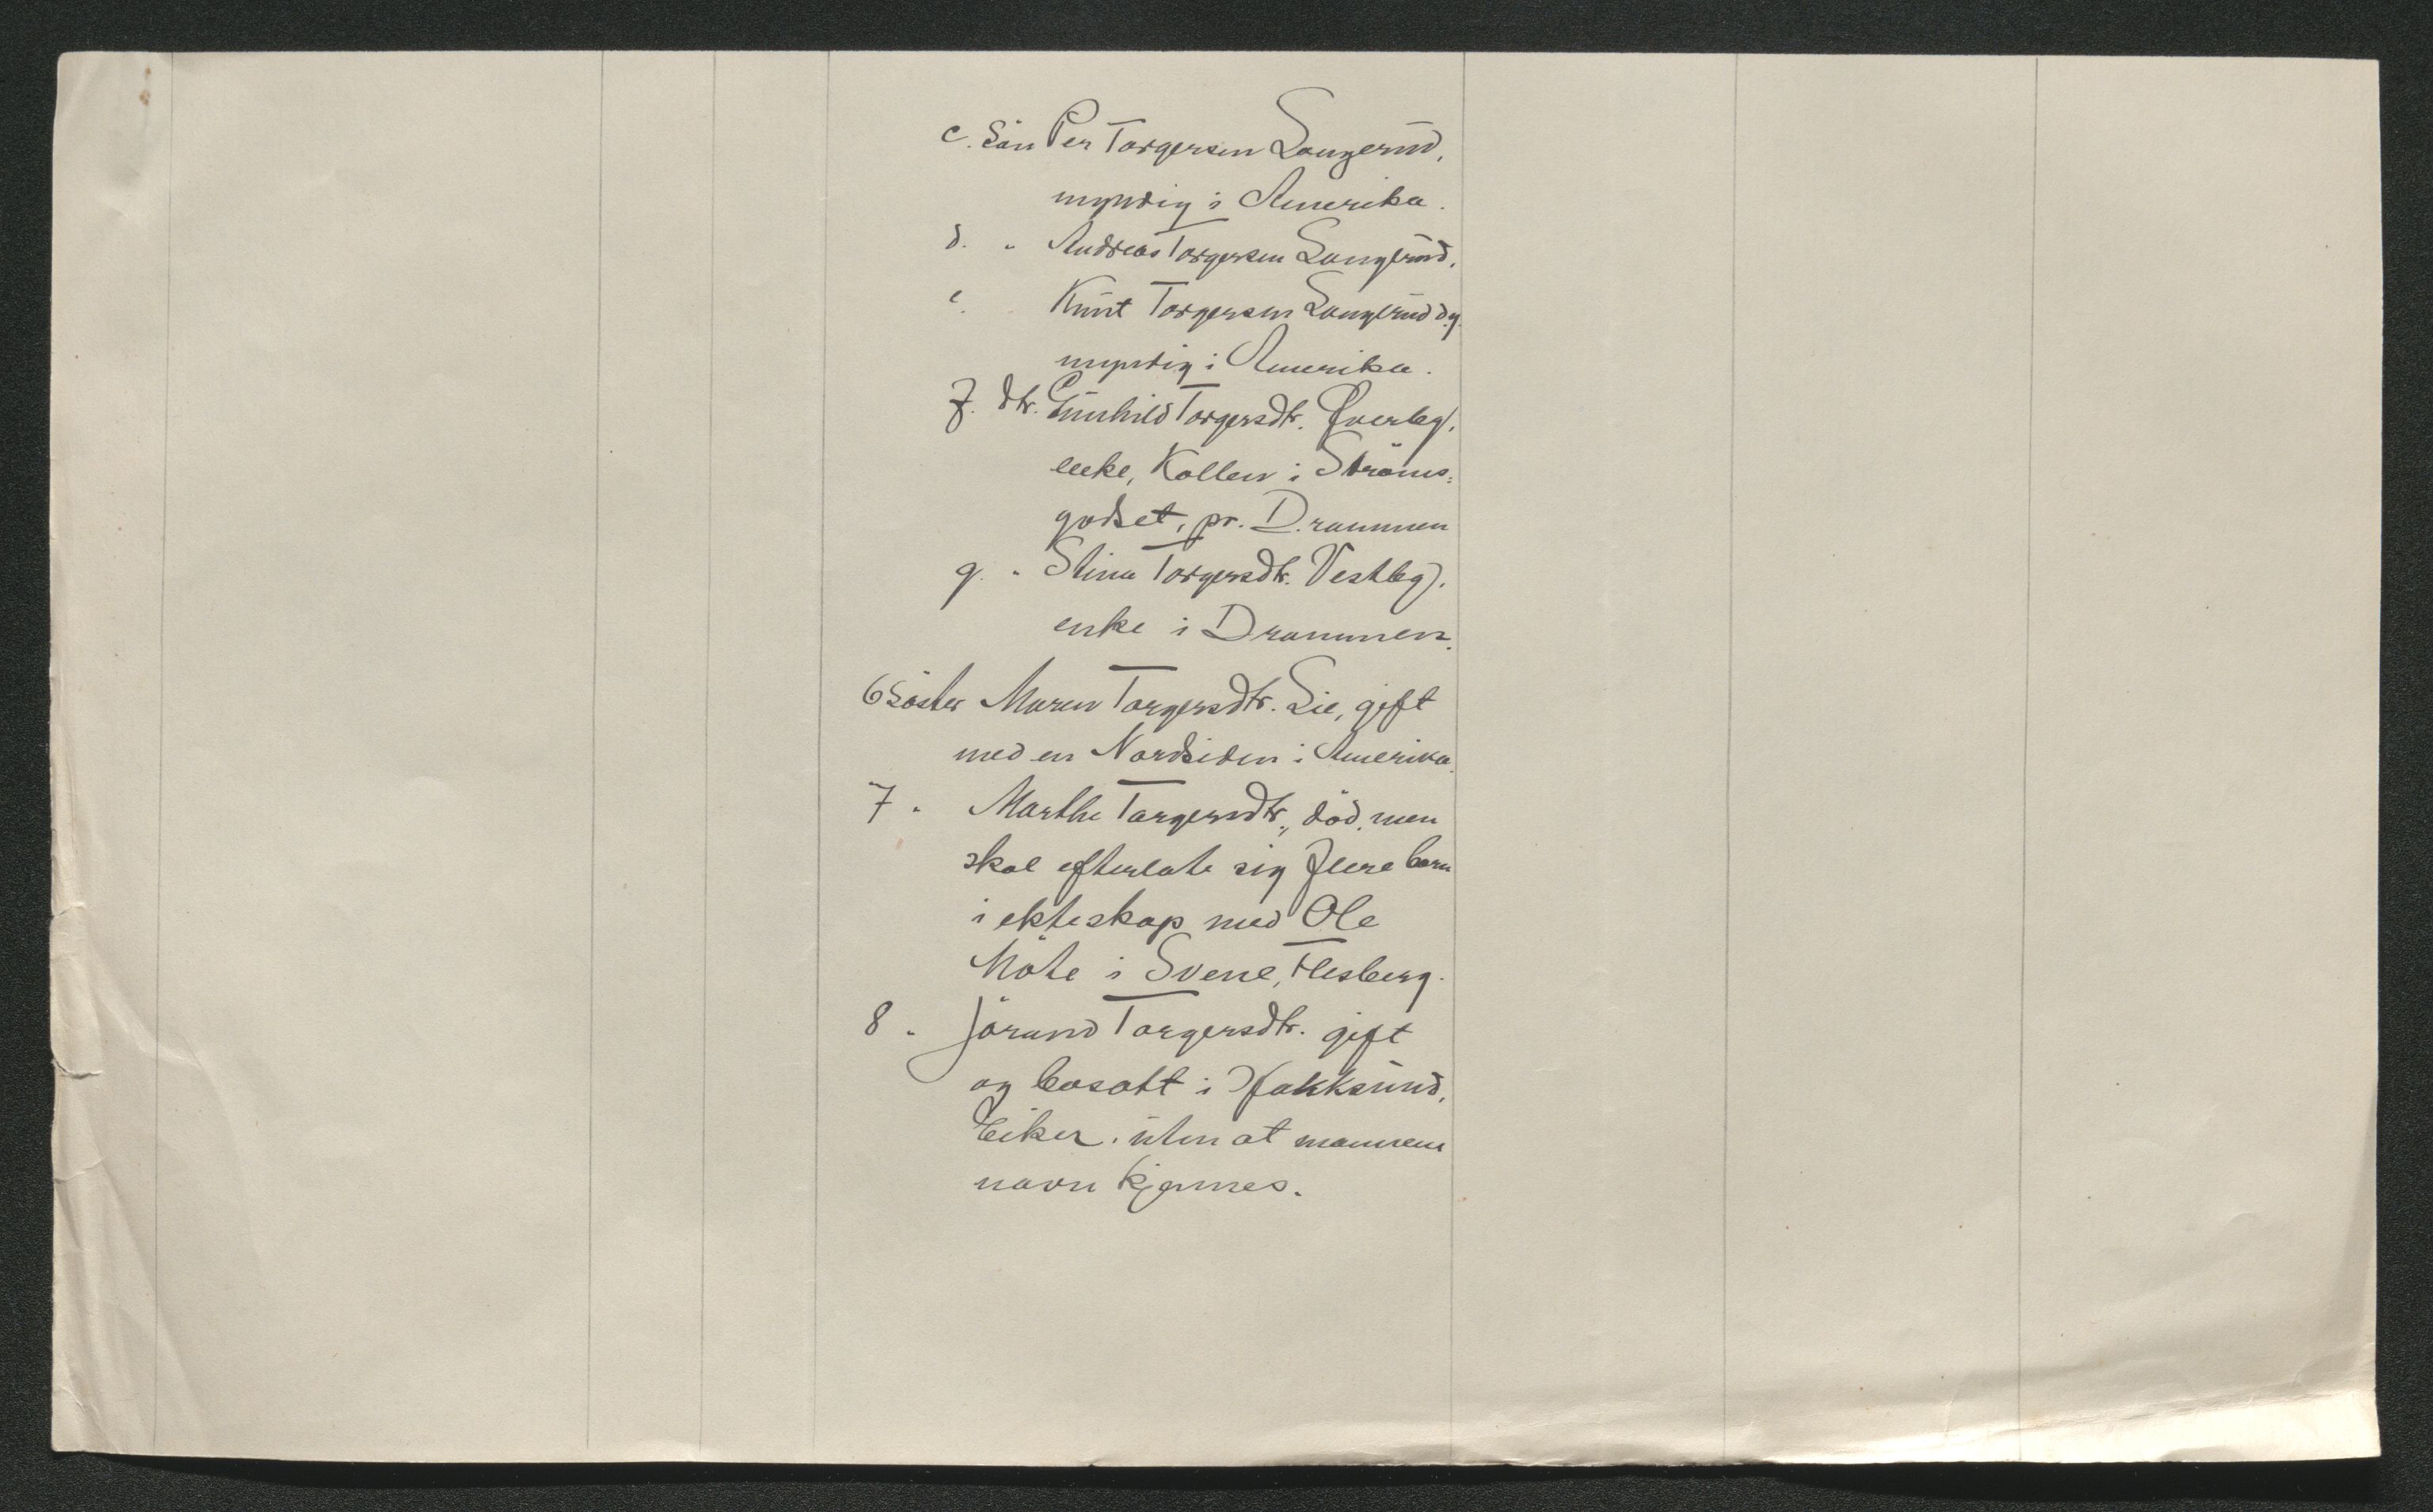 c. Sön Per Torgersen Langerud,
myndig i Amerika.
d. " Andreas Torgersen Langerud,
e. Knut Torgersen Langerud d.y.
myndig i Amerika.
f. dtr. Gunhild Torgersdtr. Överby,
enke, Kollen i Ströms-
godset, pr. Drammen
g. " Stina Torgersdtr. Vestby,
enke i Drammen.
6 Söster Maren Torgersdtr. Lie, gift
med en Nordsiden i Amerika.
7 " Marthe Torgersdtr., död, men
skal efterlate sig flere barn
i ekteskap med Ole
Möte i Svene, Flesberg.
8 " Jörand Torgersdtr. gift
og bosatt i Hokksund,
Eiker, uten at mannens
navn kjennes.